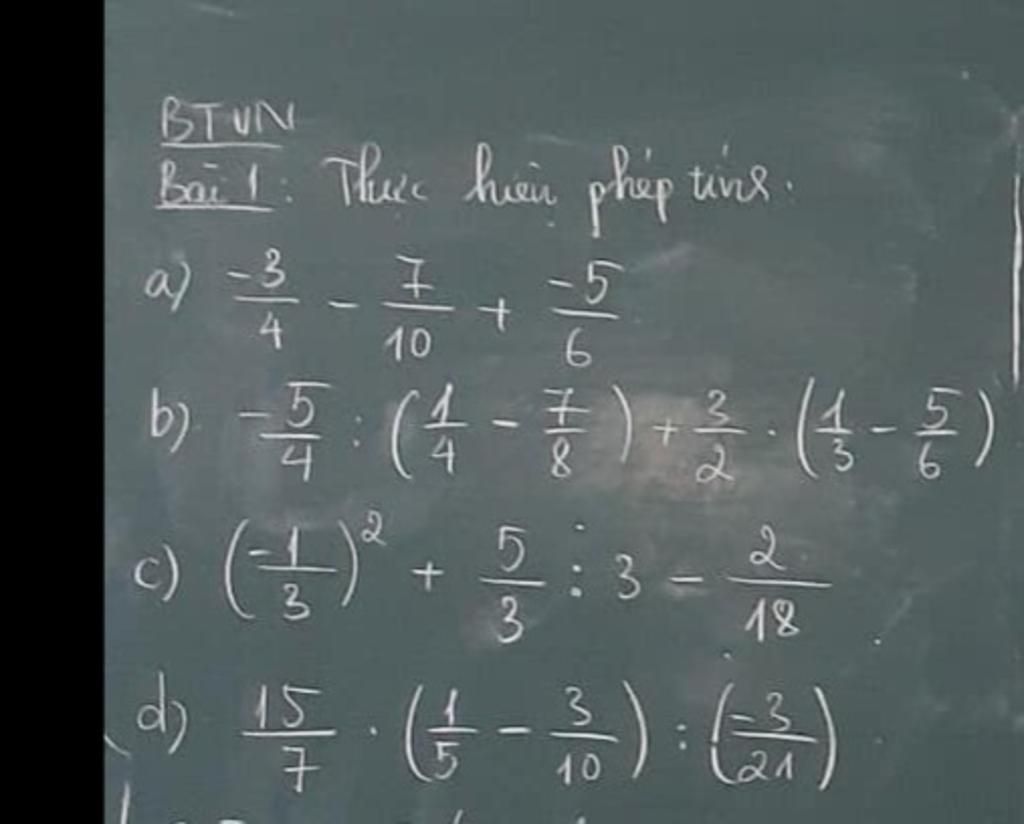 BTVN
Bài 1: Thực hiện phép tính.
a) -3/4 - 7/10 + -5/6
b) -5/4 : (1/4 - 7/8) + 3/2 . (1/3 - 5/6)
c) (-1/3)² + 5/3 : 3 - 2/18
d) 15/7 . (1/5 - 3/10) : (-3/21)